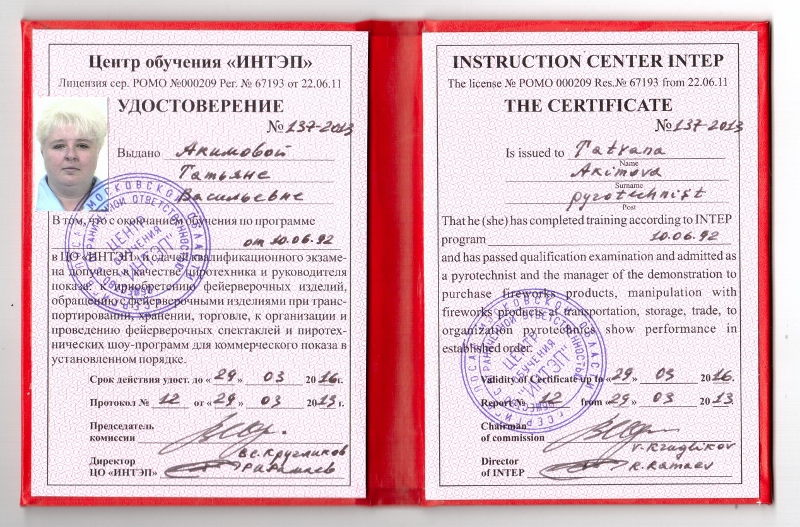 Центр обучения «ИНТЭП»
Лицензия сер. РОМО №000209 Рег. № 67193 от 22.06.11
УДОСТОВЕРЕНИЕ
№ 137-2013
Выдано Акимовой
Татьяне
Васильевне
В том, что с окончанием обучения по программе
от 10.06.92
в ЦО «ИНТЭП» и сдачей квалификационного экзаме-
на допущен в качестве пиротехника и руководителя
показа: к приобретению фейерверочных изделий,
обращению с фейерверочными изделиями при транс-
портировании, хранении, торговле, к организации и
проведению фейерверочных спектаклей и пиротех-
нических шоу-программ для коммерческого показа в
установленном порядке.
Срок действия удост. до «29» 03 2016г.
Протокол № 12 от «29» 03 2013г.
Председатель
комиссии
В.С. Кругликов
Директор
ЦО «ИНТЭП» Р.А. Рамаев
INSTRUCTION CENTER INTEP
The license № РОМО 000209 Res.№ 67193 from 22.06.11
THE CERTIFICATE
№ 137-2013
Is issued to Tatyana
Name
Akimova
Surname
pyrotechnist
Post
That he (she) has completed training according to INTEP
program 10.06.92
and has passed qualification examination and admitted as
a pyrotechnist and the manager of the demonstration to
purchase fireworks products, manipulation with
fireworks products at transportation, storage, trade, to
organization pyrotechnics show performance in
established order.
Validity of Certificate up to «29» 03 2016.
Report № 12 from «29» 03 2013
Chairman
of commission
V. Kruglikov
Director
of INTEP R. Ramaev
ЦЕНТР
ОБУЧЕНИЯ
"ИНТЭП"
ЦЕНТР
ОБУЧЕНИЯ
"ИНТЭП"